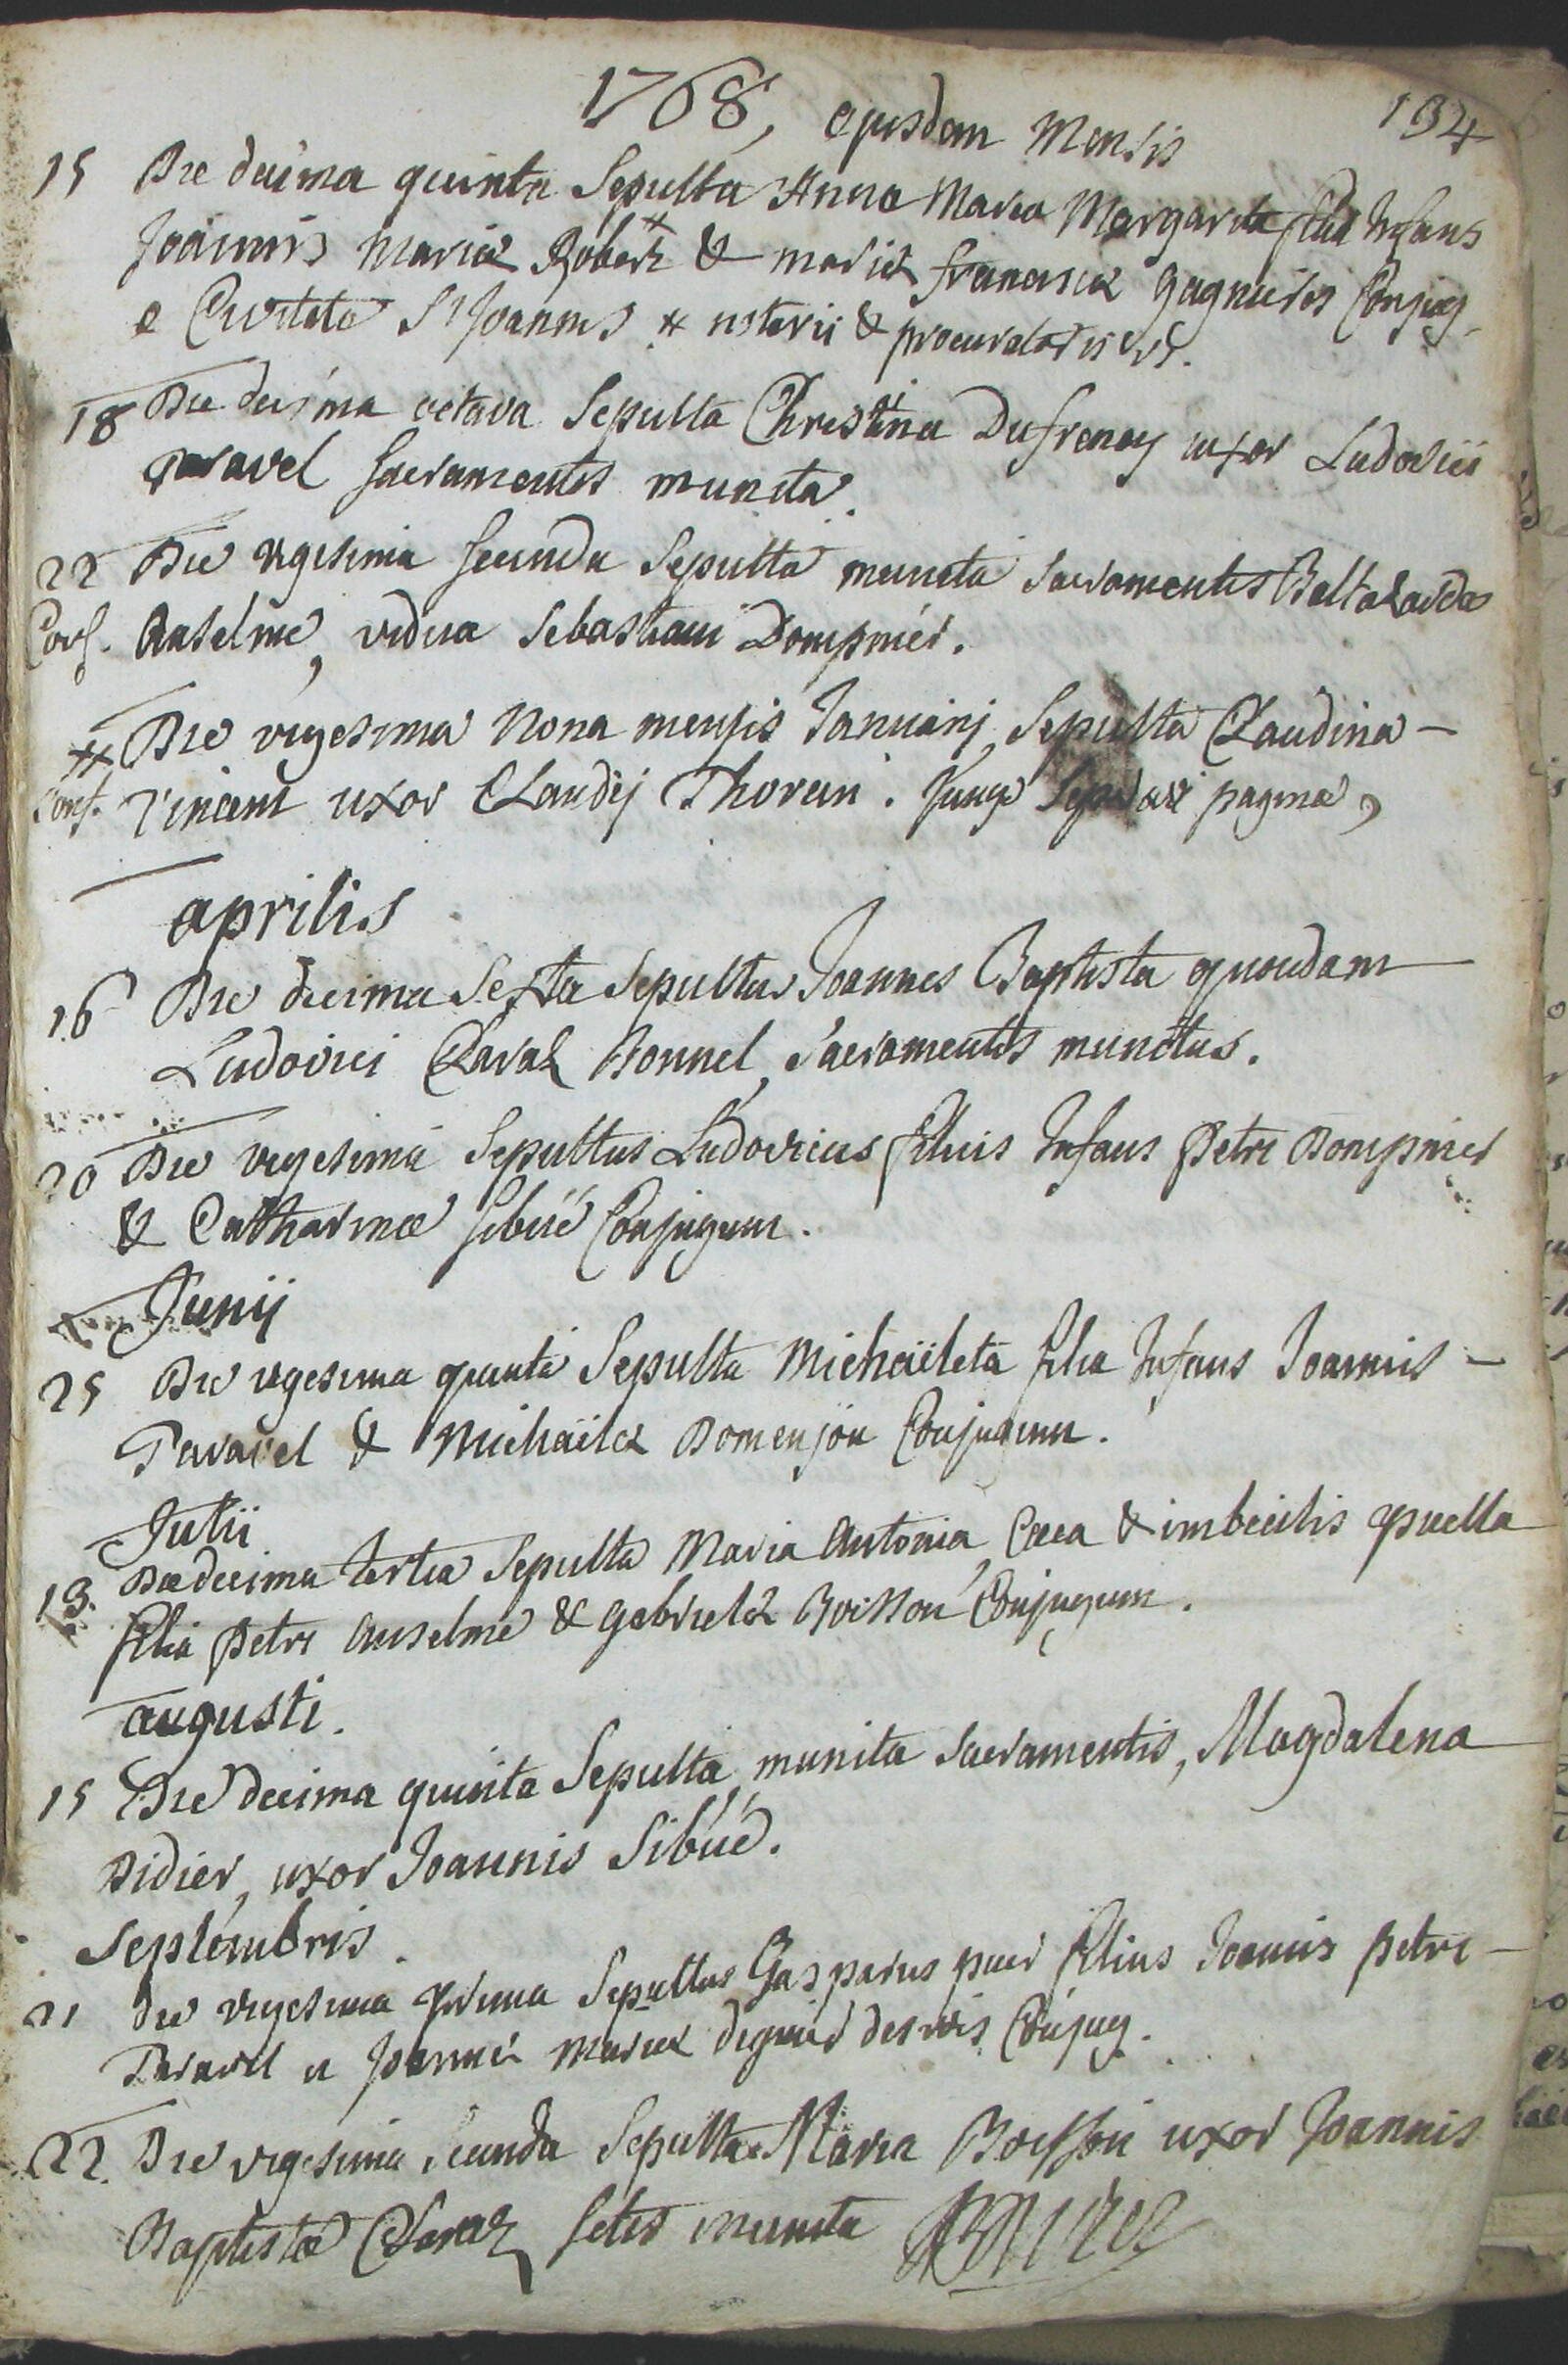 1768, ejusdem mensis 194
15 Die decima quinta Sepulta Anna Maria Margarita filia Infans
Joannis Mariæ Robert # & mariæ franciscæ gagnieres Conjug.
e Civitate St Joannis # notarii & procuratoris
18 Die decima octava Sepulta Christina Dufrenay uxor Ludovici
Taravel sacramentis munita.
22 Die vigesima secunda Sepulta munita sacramentis Baltazarda
Conf. Anselme, vidua Sebastiani Dompnier.
# Die vigesima nona mensis Januarij Sepulta Claudina -
Conf. Vincent uxor Claudij Thorein. Junge pagina,
aprilis
16 Die decima Sexta Sepultus Joannes Baptista quondam
Ludovici Claraz Bonnel, Sacramentis munitus.
20 Die vigesima Sepultus Ludovicus filius Infans Petri Dompnier
& Catharinæ Sibué Conjugum.
Junij
25 Die vigesima quinta Sepulta Michaëleta filia Infans Joannis -
Taravel & Michaëlæ Domenjou Conjugum.
Julii
13. Die decima tertia Sepulta Maria Antonia, Cæca & imbecilis puella
filia Petri Anselme & Gabrielæ Boisson Conjugum.
augusti.
15 Die decima quinta Sepulta, munita sacramentis, Magdalena
Didier, uxor Joannis Sibué.
Septembris.
21 die vigesima prima Sepultus Gasparus puer filius Joannis Petri -
Taravel & Joannæ Mariæ Conjug.
22. Die vigesima secunda Sepulta Maria Boisson uxor Joannis
Baptistæ Claraz sctis munita